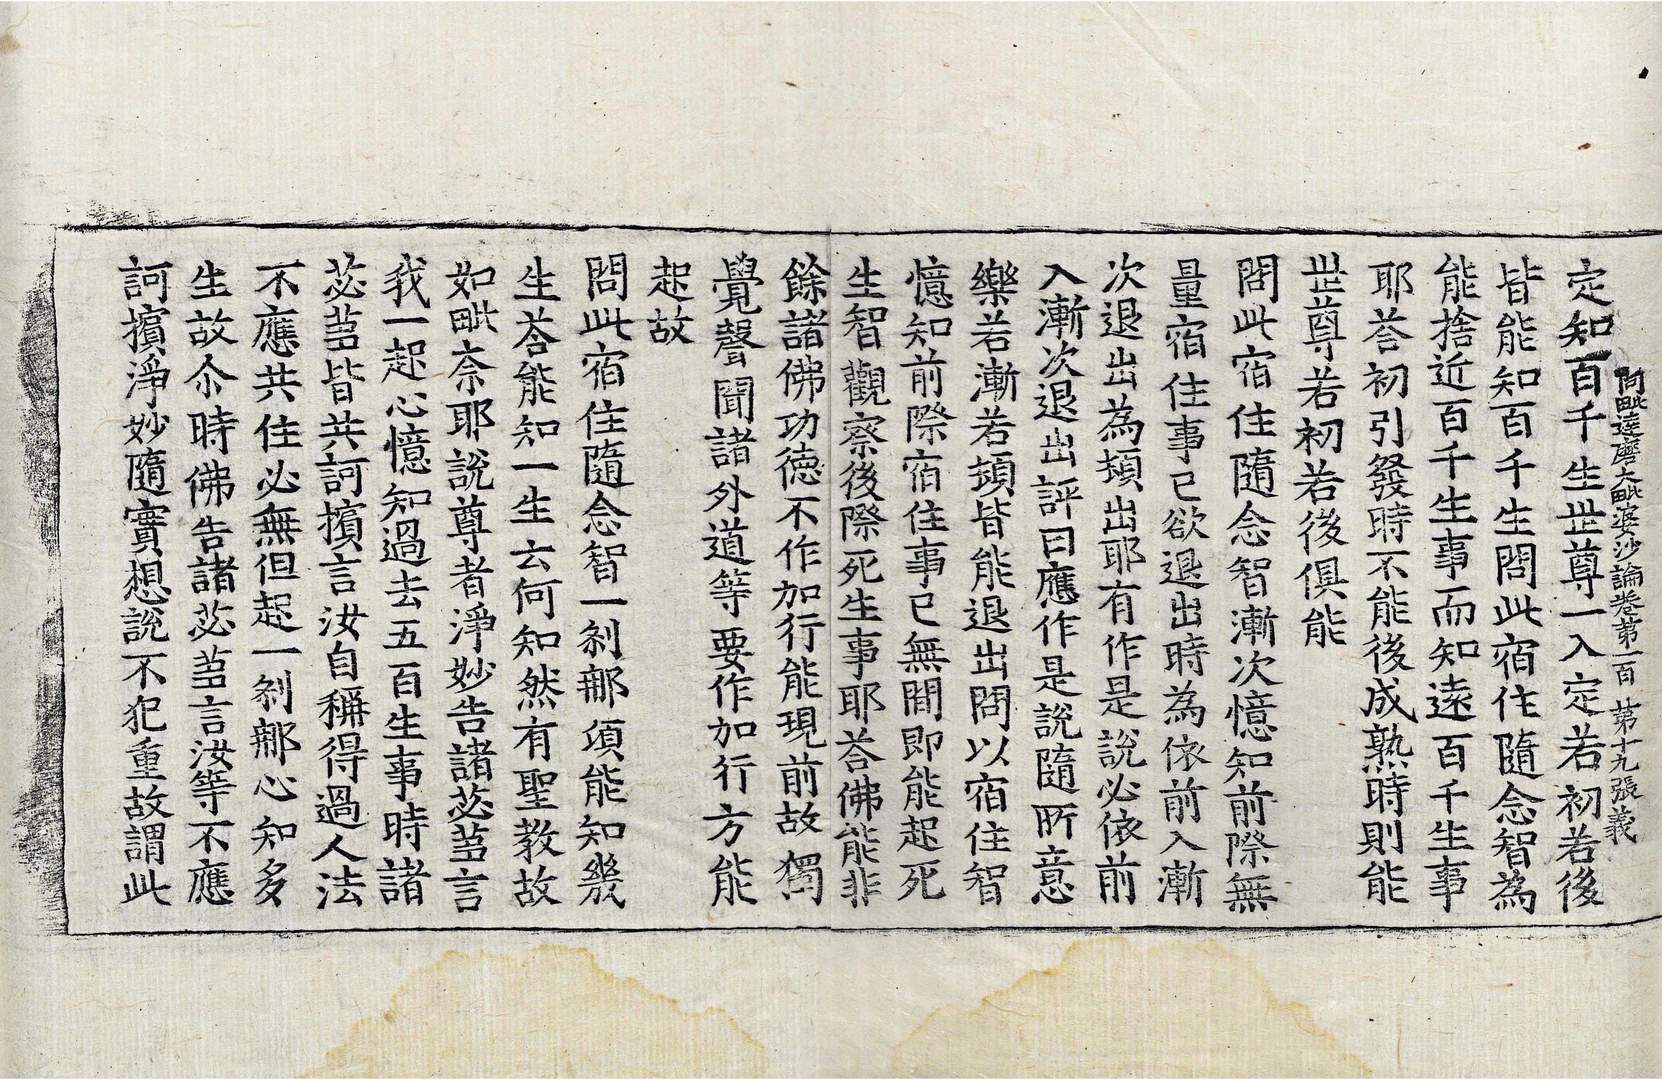 阿毗達磨大毗婆沙論卷苐一百 苐十九張 義
定知百千生世尊一入定若初若後
皆能知百千生問此宿住隨念智為
能捨近百千生事而知遠百千生事
耶荅初引發時不能後成熟時則能
世尊若初若後俱能
問此宿住隨念智漸次憶知前際無
量宿住事已欲退出時為依前入漸
次退出為頻出耶有作是說必依前
入漸次退出評曰應作是說隨所意
樂若漸若頻皆能退出問以宿住智
憶知前際宿住事已無間即能起死
生智觀察後際死生事耶荅佛能非
餘諸佛功德不作加行能現前故獨
覺聲聞諸外道等要作加行方能
起故
問此宿住隨念智一剎那頃能知幾
生荅能知一生云何知然有聖教故
如毗奈耶說尊者淨妙告諸苾芻言
我一起心憶知過去五百生事時諸
苾芻皆共訶擯言汝自稱得過人法
不應共住必無但起一剎那心知多
生故尒時佛告諸苾芻言汝等不應
訶擯淨妙隨實想說不犯重故謂此